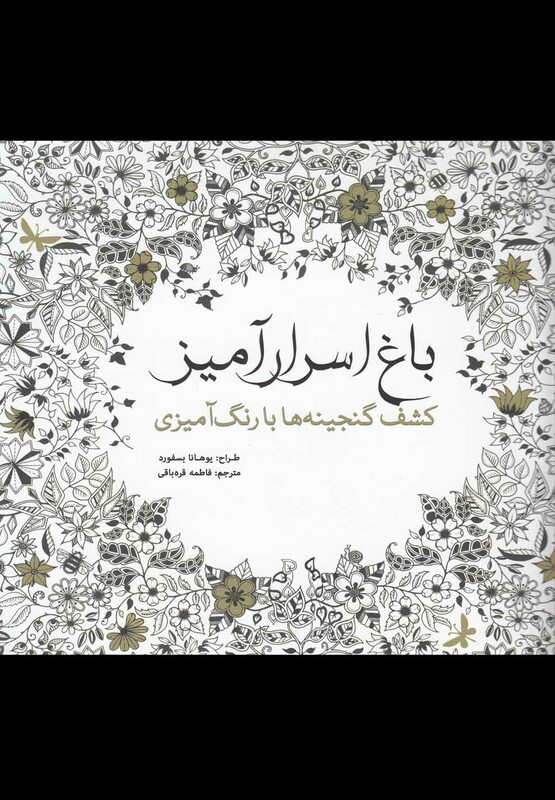 باغ اسرارآمیز
کشف گنجینه‌ها با رنگ‌آمیزی
طراح: یوهانا بسفورد
مترجم: فاطمه قره‌باقی